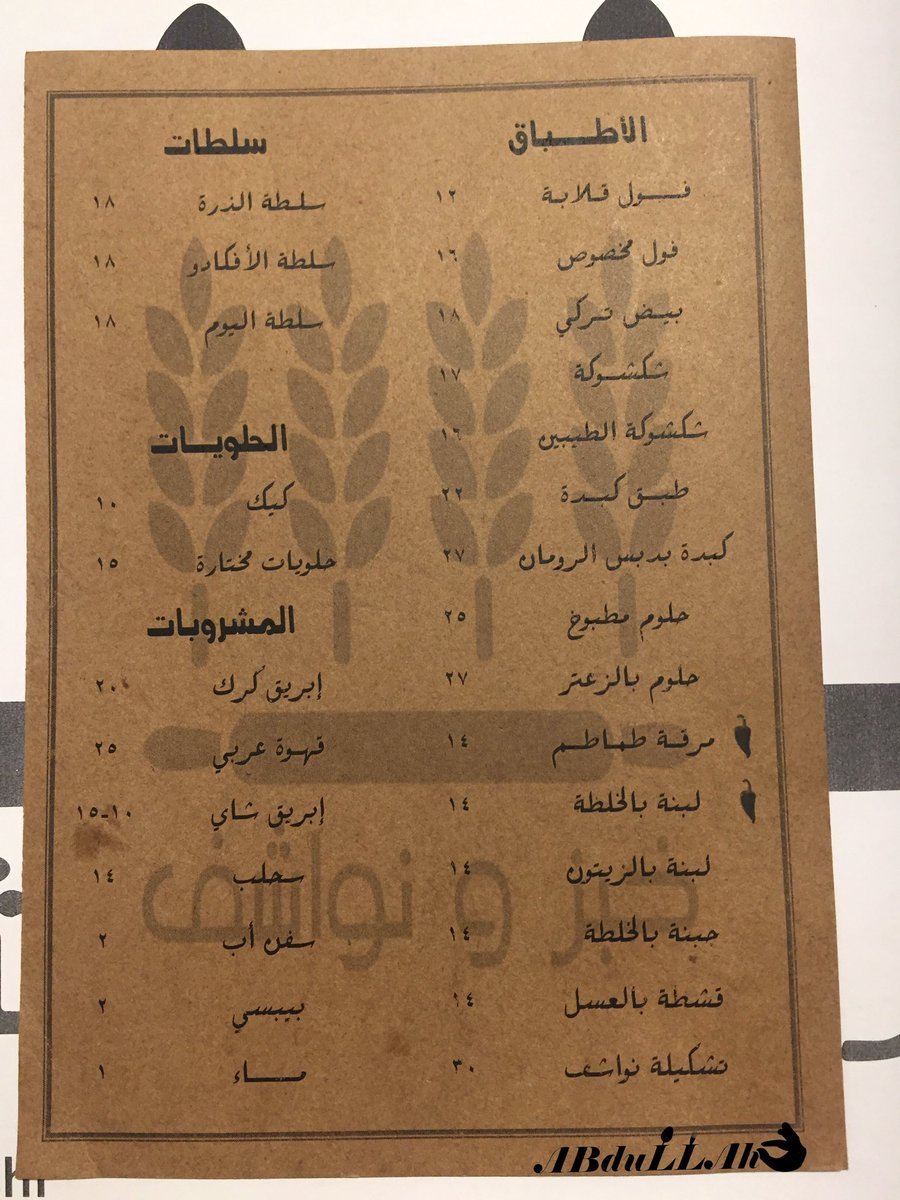 الأطباق
فول قلابة ١٢
فول مخصوص ١٦
بيض تركي ١٨
شكشوكة ١٧
شكشوكة الطيبين ١٦
طبق كبدة ٢٢
كبدة بدبس الرومان ٢٧
حلوم مطبوخ ٢٥
حلوم بالزعتر ٢٧
مرقة طماطم ١٤
لبنة بالخلطة ١٤
لبنة بالزيتون ١٤
جبنة بالخلطة ١٤
قشطة بالعسل ١٤
تشكيلة نواشف ٣٠
سلطات
سلطة الذرة ١٨
سلطة الأفكادو ١٨
سلطة اليوم ١٨
الحلويات
كيك ١٠
حلويات مختارة ١٥
المشروبات
إبريق كرك ٢٠
قهوة عربي ٢٥
إبريق شاي ١٠-١٥
سحلب ١٤
سفن أب ٢
بيبسي ٢
ماء ١
خبز و نواشف
ABduLLAh